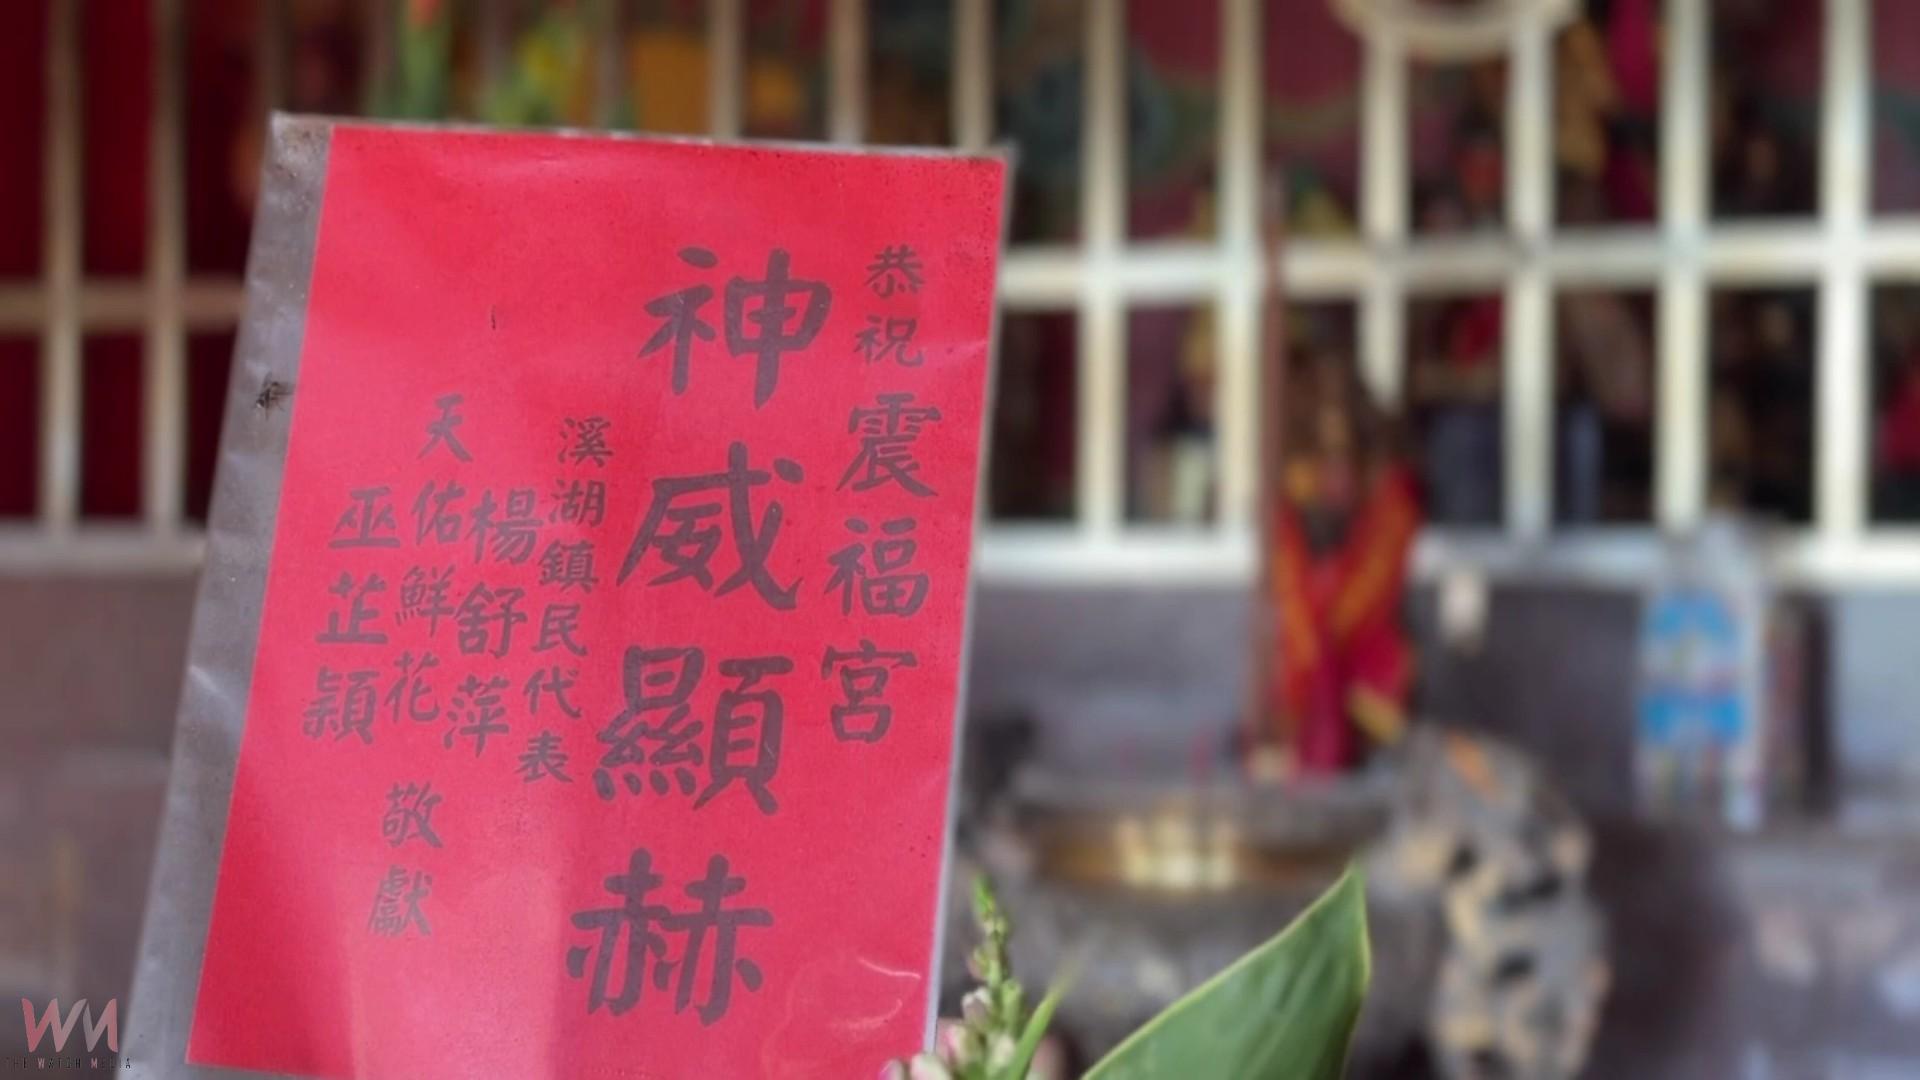 恭祝震福宮
神威顯赫
溪湖鎮民代表
楊舒萍
天佑鮮花
巫芷潁
敬獻
WM
THE WATCH MEDIA